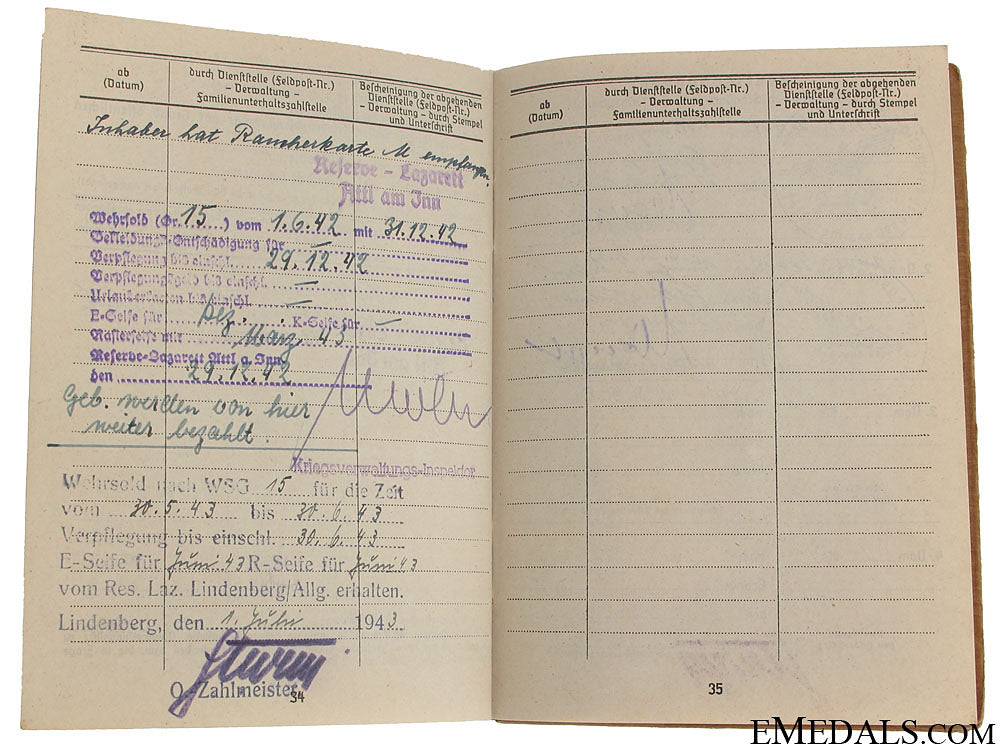 ab
(Datum)
durch Dienststelle (Feldpost-Nr.)
- Verwaltung -
Familienunterhaltszahlstelle
Bescheinigung der abgehenden
Dienststelle (Feldpost-Nr.)
- Verwaltung - durch Stempel
und Unterschrift
Inhaber hat Raucherkarte M empfangen.
Reserve - Lazarett
Attl am Inn
Wehrsold (Gr. 15 ) vom 1.6.42 mit 31.12.42
Bekleidungs-Entschädigung für —
Verpflegung bis einschl. 29.12.42
Verpflegungsgeld bis einschl. —
Urlauberkarten bis einschl. —
E-Seife für Dez. K-Seife für —
Rasierseife mit März 43
Reserve-Lazarett Attl a. Inn
den 29.12.42
Geb. werden von hier
weiter bezahlt.
Kriegsverwaltungs-Inspektor
Wehrsold nach WSG 15 für die Zeit
vom 30.5.43 bis 30.6.43
Verpflegung bis einschl. 30.6.43
E-Seife für Juni 43 R-Seife für Juni 43
vom Res. Laz. Lindenberg/Allg. erhalten.
Lindenberg, den 1. Juli 1943
O. Zahlmeister
34
ab
(Datum)
durch Dienststelle (Feldpost-Nr.)
- Verwaltung -
Familienunterhaltszahlstelle
Bescheinigung der abgehenden
Dienststelle (Feldpost-Nr.)
- Verwaltung - durch Stempel
und Unterschrift
35
EMEDALS.COM